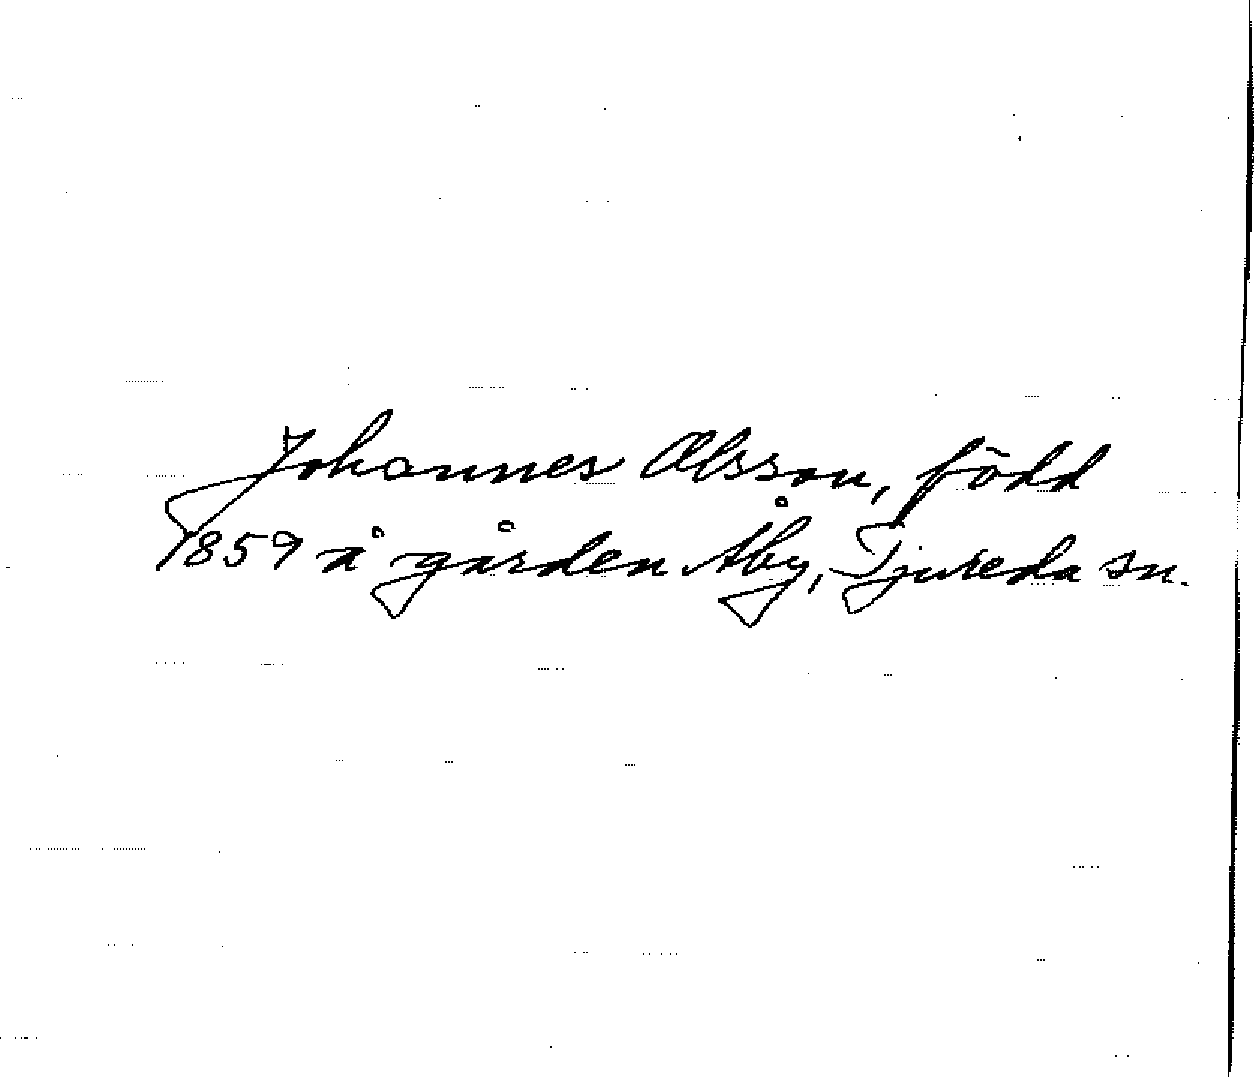 Johannes Olsson, född
1859 å gården Åby, Tjureda sn.